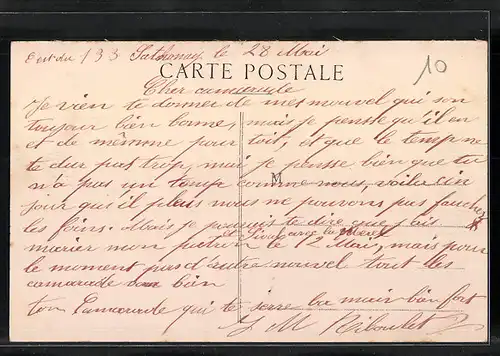 C est du 133 Sathonay le 28 Mai
10
CARTE POSTALE
Cher camarade
Je vien te donner de mes nouvel qui son
toujour bien bonne, mais je pensse qu'il en
et de mèmme pour toit, et que le temp ne
te dur pas trop, mai je pensse bien que tu
n'a pas un temp comme nous, voila cin
M
jour qui il pleus nous ne pouvons pas faucher
les foins. Mais je te dire que j'ais
et Louis avec la
marier mon patron le 12 Mai, mais pour
le moment pas d'autre nouvel tout les
camarade son bien
ton Camarade qui te serre la main bien fort
J M Riboulet